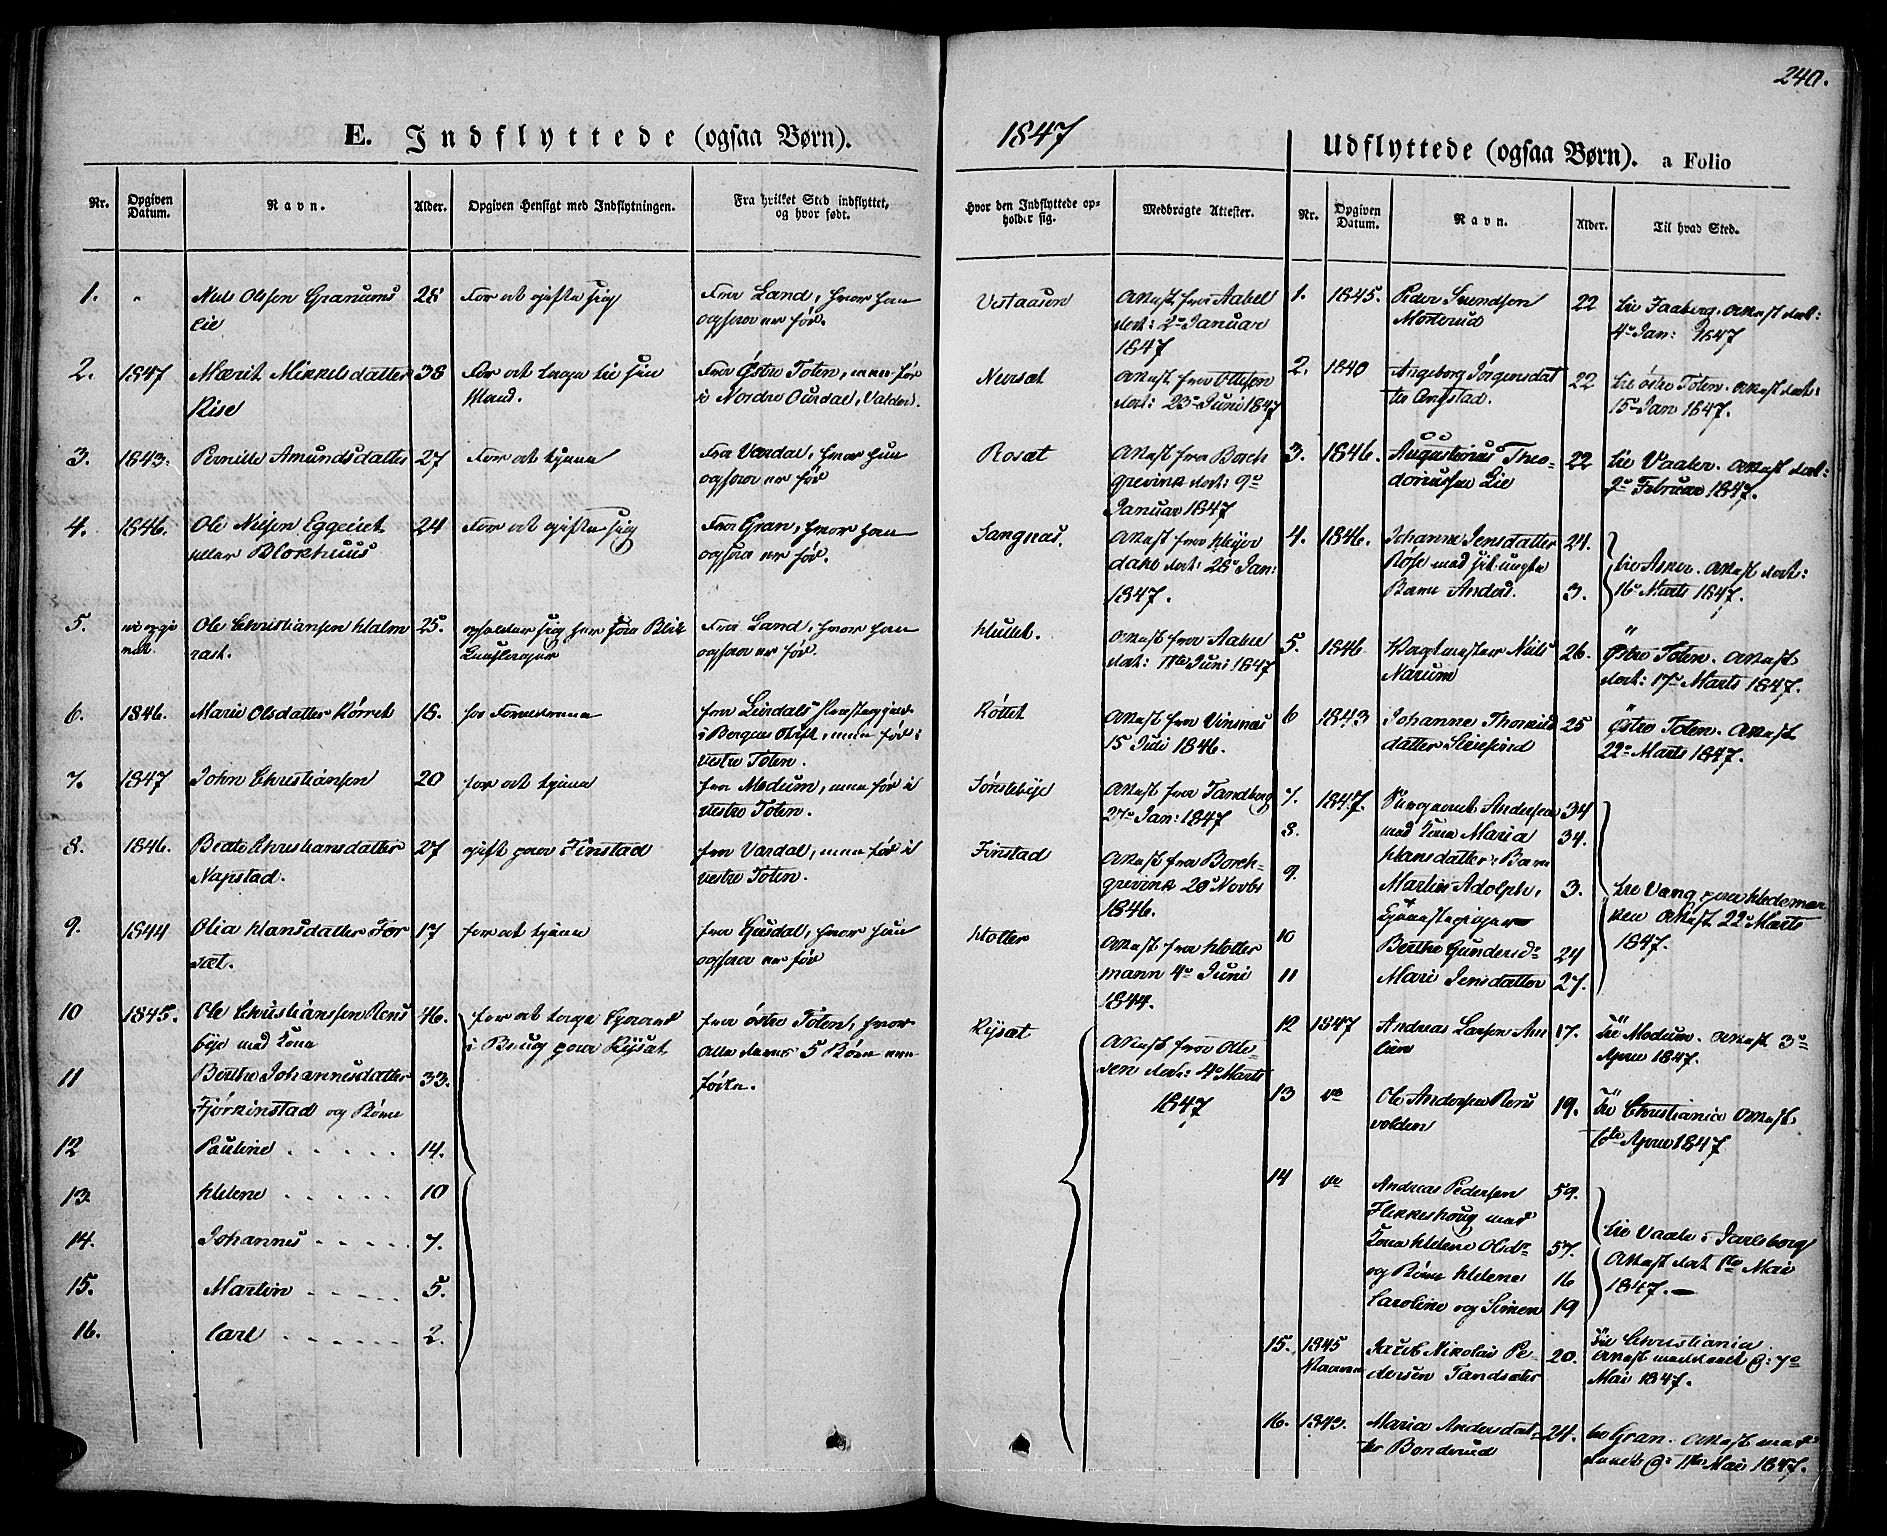 240.
E. Indflyttede (ogsaa Børn).
1847
Udflyttede (ogsaa Børn). a Folio
Nr. Opgiven Datum. Navn. Alder. Opgiven Hensigt med Indflytningen. Fra hvilket Sted indflyttet, og hvor født.
Hvor den Indflyttede opholder sig. Medbragte Attester.
Nr. Opgiven Datum. Navn. Alder. Til hvad Sted.
1. " Niels Olssen Granums 28 For at gifte sig Fra Land, hvor han
lie ogsaa er før.
Vestaasen Attest fra Aabel
dat: 2. Januar
1847
2. 1847 Marit Mikkelsdatter 38 For at tage til sin Fra Østre Toten, men før
Rise Mand. i Nordre Ourdal, Valders.
Nersæt Attest fra Ottesen
dat: 23. Juni 1847
3. 1843. Pernille Amundsdatter 27 For at tjene Fra Vardal, hvor hun
ogsaa er før
Rosæt Attest fra Borch
grevink dat: 9.
Januar 1847
4. 1846. Ole Nilsen Eggeiet 24 For at gifte sig Fra Gran, hvor han
eller Blokhuus ogsaa er før.
Sangnæs. Attest fra
dat: 28. Jan:
1847.
5. ei opgi Ole Christiansen Halm 25. opholder sig her som Blik Fra Land, hvor han
vet. rast. kenslager ogsaa er før.
Hullet. Attest fra Aabel
dat: 11te Juni 1847
6. 1846. Marie Olsdatter Rørret 18. hos Forældrene fra Leirdals Præstegjæld
i Bergens Stift, men før i
vestre Toten.
Røttet Attest fra Vinsnæs
15 Juli 1846.
7. 1847 John Christiansen 20 for at tjene fra Modum, men før i
vestre Toten.
Sønstebye Attest fra Tandberg
27. Jan: 1847
8. 1846. Beate Christiansdatter 27 gift paa Finstad fra Vardal, men før i
Napstad. vestre Toten.
Finstad Attest fra Borch-
grevink 20. Novbr
1846.
9. 1844 Olia Hansdatter For 17 for at tjene fra Gusdal, hvor hun
sæt. ogsaa er før
Kolter Attest fra Holter
mann 4. Juni
1844.
10 1845. Ole Christianssen Rens 46. for at tage Gaard fra østre Toten, hvor
bye med Kone i Brug paa Rysæt alle deres 5 Børn ere
11 Berthe Johannesdatter 33. fødte.
Fjørkinstad og Børn
Rysæt Attest fra Otte-
sen dat: 4. Marts
1847
12 Pauline . . . . . 14.
13. Helene . . . . . 10
14. Johannes . . . . . 7.
15. Martin . . . . . 5.
16. Carl . . . . . 2.
1. 1845. Peder Svendsen 22 til Faaberg. Attest dat:
Motterud 4. Jan: 1847
2. 1840 Angeborg Jörgensdat 22 til østre Toten. Attest dat:
ter Angstad. 15. Jan 1847.
3. 1846. Augustinus Theo- 22 til Vaaler. Attest dat:
doriussen Lie 9. Februar 1847.
4. 1846. Johanne Jensdatter 24.
Røse med sit uægte til Asker. Attest dat:
Barn Anders. 3. 16. Marts 1847.
5. 1846 Vagtmester Niels 26. Østre Toten. Attest
Narum dat: 17. Marts 1847.
6 1843 Johanne Thorkild 25 Østre Toten. Attest
datter Sivesind 22. Marts 1847.
7. 1847. Andersen 34
8. med Kone Maria 34.
9. Hansdatter, Barn
Martin Adolph, 3. til Vang paa Hedemar
Tjenestepiger ken Attest 22. Marts
10 Berthe Gundersd. 24 1847.
11 Mari Jensdatter 27.
12 1847 Andreas Larsen An 17. Til Modum. Attest 3.
lien April 1847.
13 do Ole Andersen Rens 19. Til Christiania Attest
volden April 1847
14 do Andreas Pedersen 59.
Flikkeshoug med
Kone Helene Olsdr 57. til Vaale i Jarlsberg
og Børn Helene 16 Attest dat 1te Mai
Caroline og Simen 19 1847. —
15. 1845 Jacob Nikolai Pe- 20. Til Christiania
dersen Tandsæter Attest meddeelt d: 7.
Mai 1847.
16. 1843. Maria Andersdat- 24. til Gran. Attest med
ter Bonderud deelt d: 11te Mai 1847.